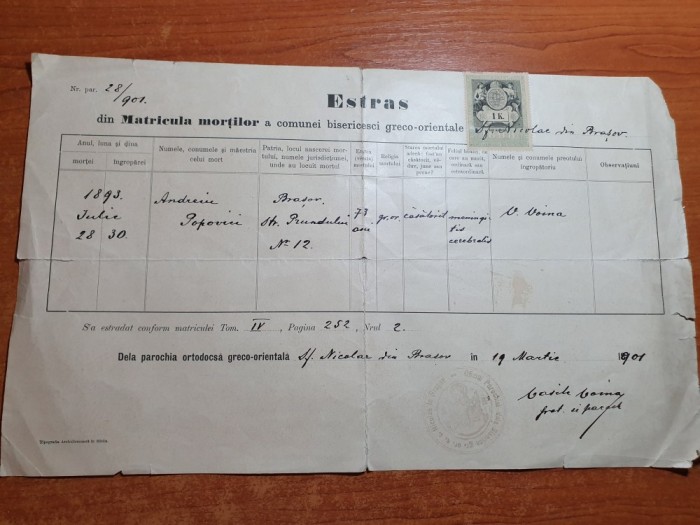 Nr. par. 28/901.
Estras
1 K.
din Matricula morților a comunei bisericesci greco-orientale Sf. Nicolae din Brașov.
Anul, luna și diua
morței îngropărei
Numele, conumele și măestria celui mort
Patria, locul nascerei mortului, numele jurisdicțiunei, unde au locuit mortul
Religia mortului
Numele și conumele preotului îngropătoriu
Observațiuni
1893 Iulie 28 30.
Andreiu Popovici
Brașov. Str. Prundului No 12.
73 ani
gr. or.
căsătorit
meningitis cerebralis
V. Voina
S'a estradat conform matriculei Tom. IV, Pagina 252, Nrul 2.
Dela parochia ortodocsă greco-orientală Sf. Nicolae din Brasov în 19 Martie 1901
Vasile Voina